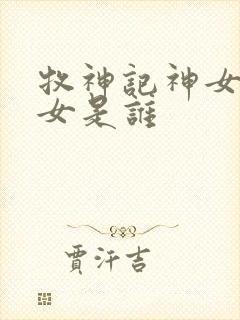 牧神記神女
女是誰
賈汗吉